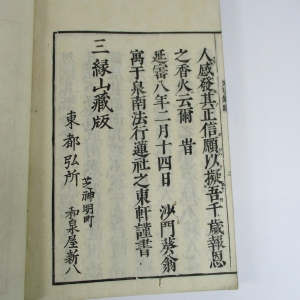 人感發其正信願以擬吾千歲報恩
之香火云爾 旹
延寶八年二月十四日 沙門葵翁
寓于泉南法行蓮社之東軒謹書
三縁山藏版
芝神明町
東都弘所 和泉屋新八